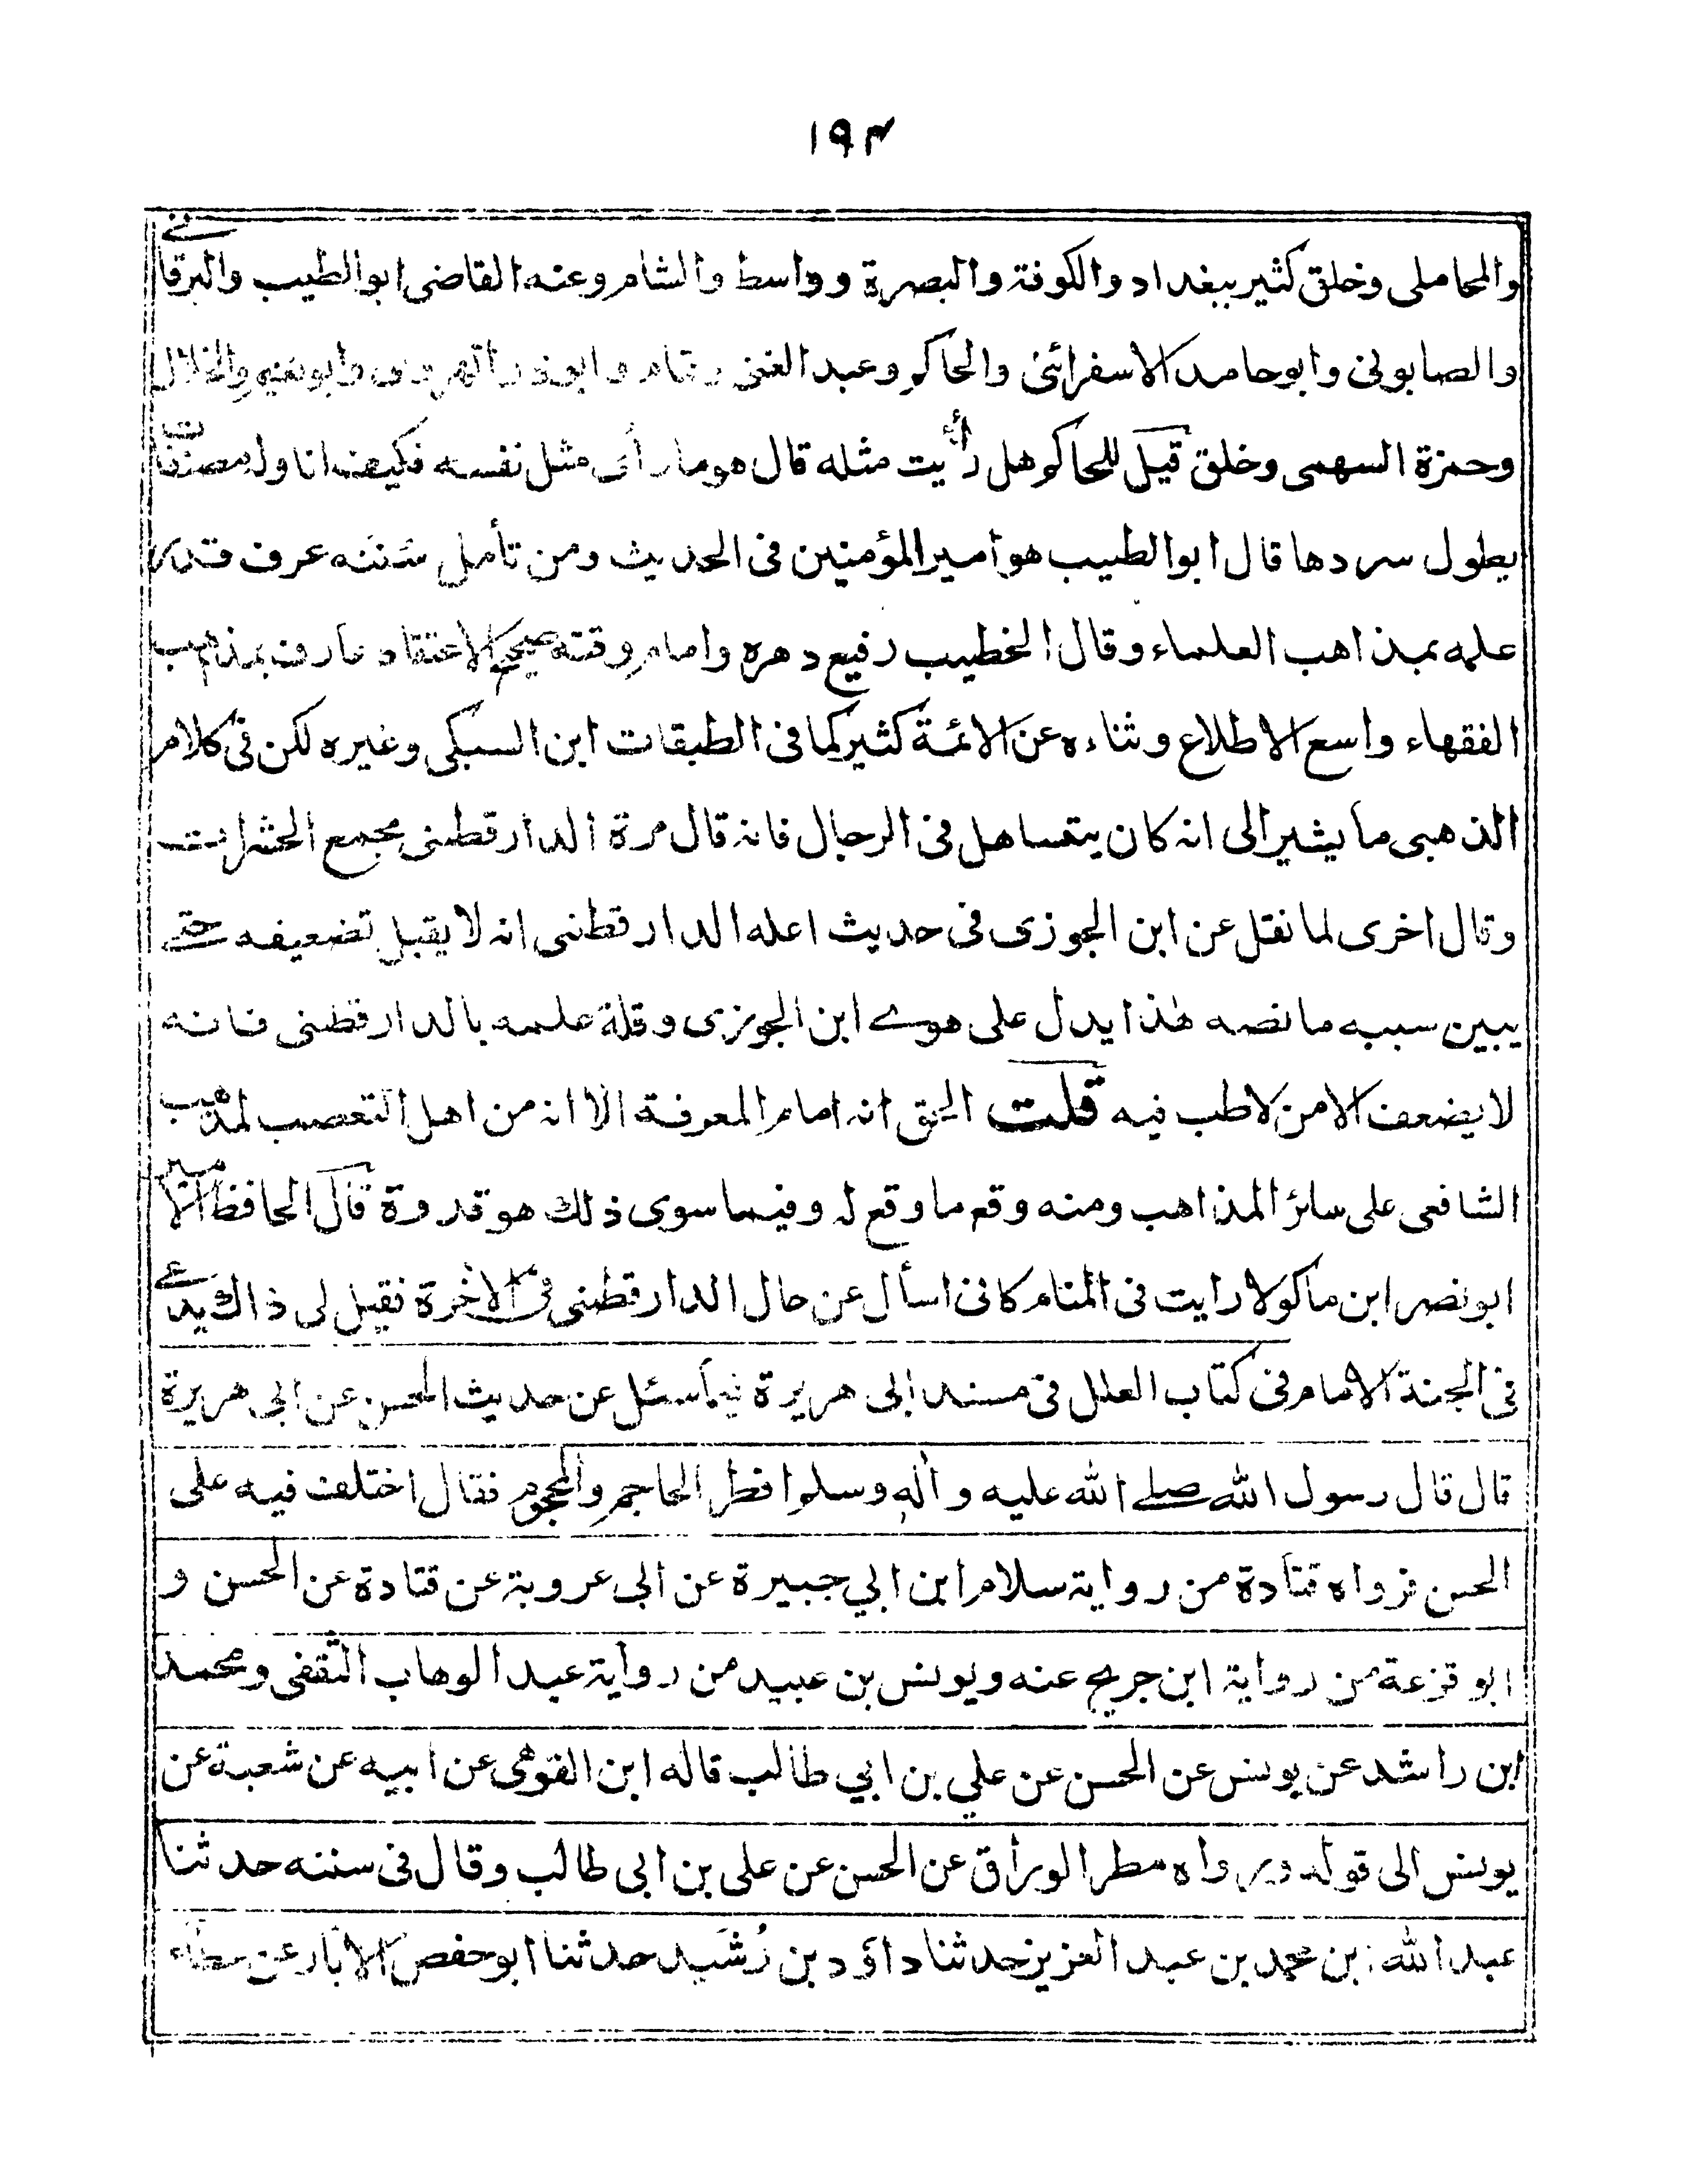 ١٩٣
والمحاملى وخلق كثير ببغداد والكوفة والبصرة وواسط والشام وعنه القاضى ابوالطيب والبرقانے
والصابونى وابوحامد الاسفرائنى والحاكم وعبدالغنى وتمام وابوذر الهروى وابونعيم والخلال
وحمزة السهمى وخلق قيل للحاكم هل رأيت مثله قال هو ما رأى مثل نفسه فكيف انا وله مصنفات
يطول سردها قال ابوالطيب هو امير المؤمنين فى الحديث ومن تأمل سننه عرف قدر
علمه بمذاهب العلماء وقال الخطيب رفيع دهره وامام وقته صحيح الاعتقاد عارف بمذاهب
الفقهاء واسع الاطلاع وثناءه عن الائمة كثير كما فى الطبقات ابن السبكى وغيره لكن فى كلام
الذهبى ما يشير الى انه كان يتساهل فى الرجال فانه قال مرة الدارقطنى مجمع الحشرات
وقال اخرى لما نقل عن ابن الجوزى فى حديث اعله الدارقطنى انه لا يقبل تضعيفه حتے
يبين سببه ما نصه هذا يدل على هوے ابن الجوزى وقلة علمه بالدارقطنى فانه
لا يضعف الا من لا طب فيه قلت الحق انه امام المعرفة الا انه من اهل التعصب لمذهب
الشافعى على سائر المذاهب ومنه وقع ما وقع له وفيما سوى ذلك هو قدوة قال الحافظ الامير
ابونصر ابن ماكولا رايت فى المنام كانى اسأل عن حال الدارقطنى فى الآخرة فقيل لى ذاك يدعے
فى الجنة الامام فى كتاب العلل فى مسند ابى هريرة فيما سئل عن حديث الحسن عن ابى هريرة
قال قال رسول الله صلے الله عليه وآله وسلم افطر الحاجم والمحجوم فقال اختلف فيه على
الحسن فرواه قتادة من رواية سلام ابن ابي جبيرة عن ابى عروبة عن قتادة عن الحسن و
ابو قزعة من رواية ابن جريج عنه ويونس بن عبيد من رواية عبد الوهاب الثقفى ومحمد
ابن راشد عن يونس عن الحسن عن علي بن ابي طالب قاله ابن القوهى عن ابيه عن شعبة عن
يونس الى قوله ورواه مطر الوراق عن الحسن عن على بن ابى طالب وقال فى سننه حدثنا
عبد الله بن محمد بن عبد العزيز حدثنا داؤد بن رُشَيد حدثنا ابوحفص الابار عن عطاء